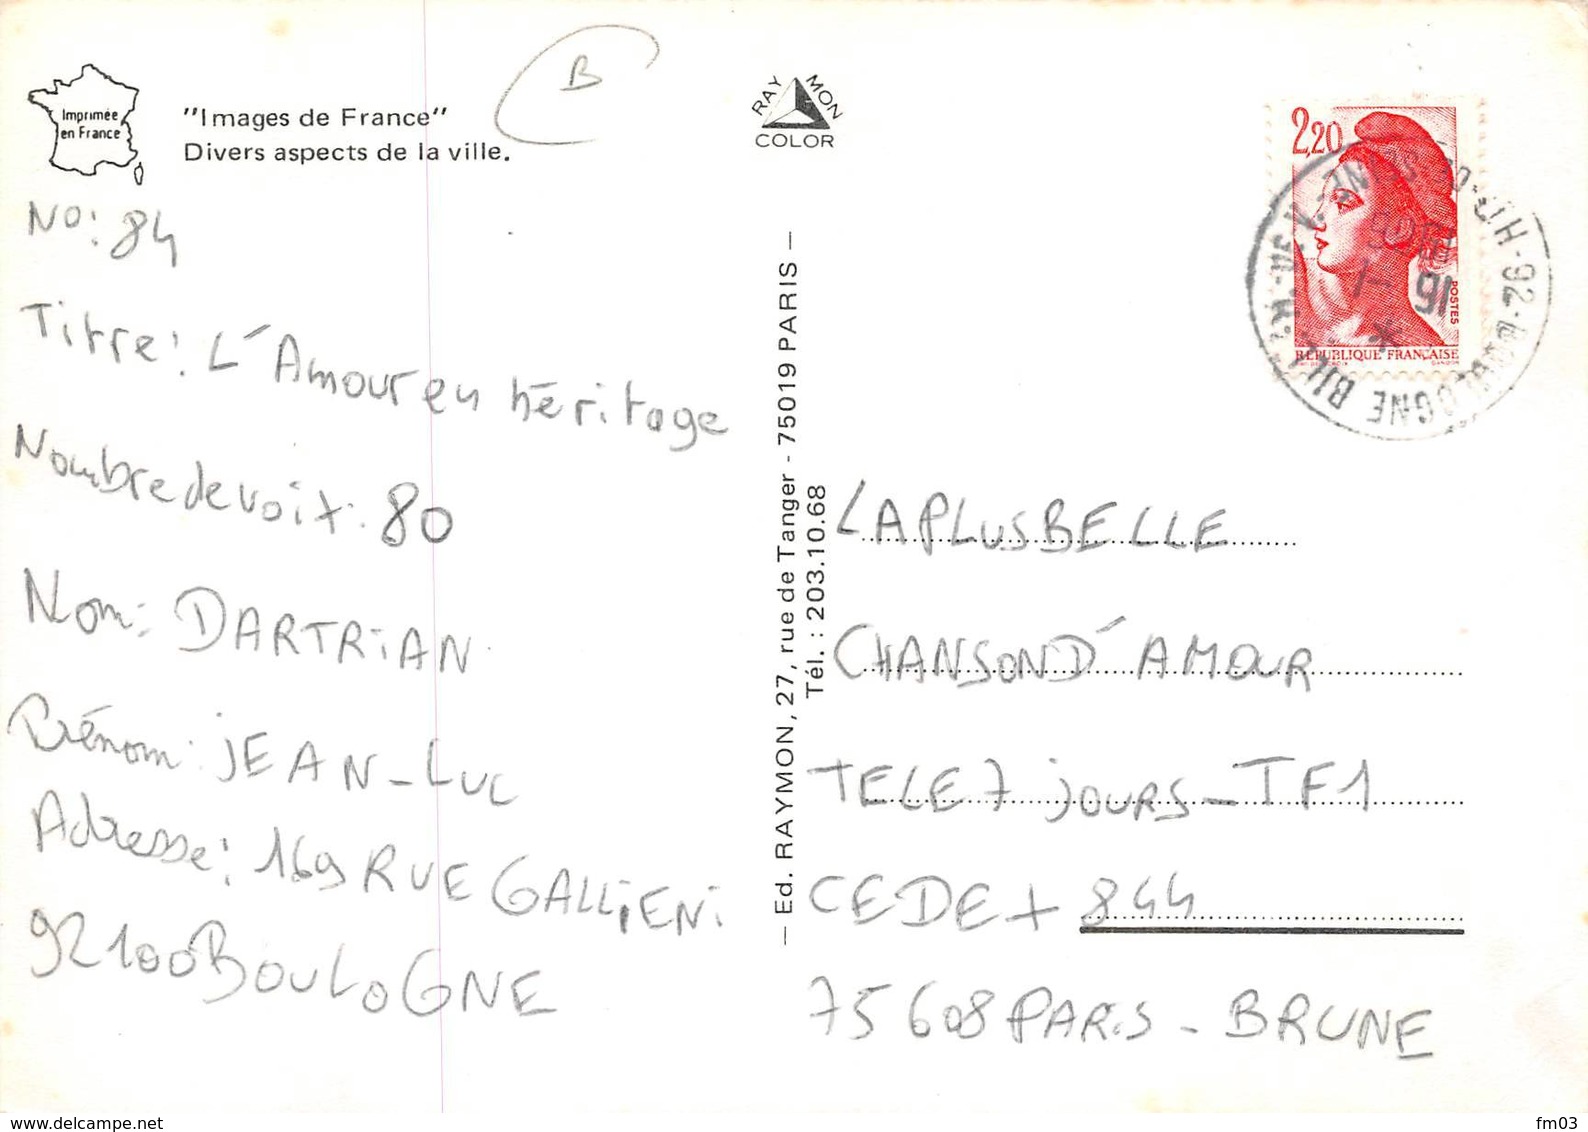 Imprimée
en France
"Images de France"
Divers aspects de la ville.
B
RAYMON
COLOR
No: 84
Titre: L'Amour en héritage
Nombre de voix: 80
Nom: DARTRiAN
Prénom: JEAN-LUC
Adresse: 169 RUE GALLiENi
92100 BOULOGNE
— Ed. RAYMON, 27, rue de Tanger - 75019 PARIS —
Tél. : 203.10.68
2,20
POSTES
REPUBLIQUE FRANÇAISE
92-BOULOGNE BILL
HTS-DE-SEINE
16
LA PLUS BELLE
CHANSON D'AMOUR
TELE 7 JOURS - TF1
CEDEX 844
75608 PARiS - BRUNE
www.delcampe.net
fm03